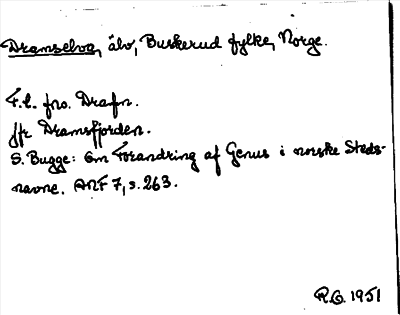 Dramselva, älv, Buskerud fylke, Norge.
F.l. fno. Drafn.
Jfr Dramsfjorden.
S. Bugge: Om Forandring af Genus i norske Steds-
navne. ANF 7, s. 263.
R.G. 1951